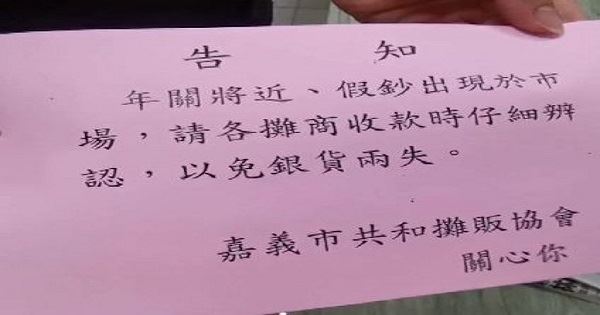 告知
年關將近、假鈔出現於市
場，請各攤商收款時仔細辨
認，以免銀貨兩失。
嘉義市共和攤販協會
關心你